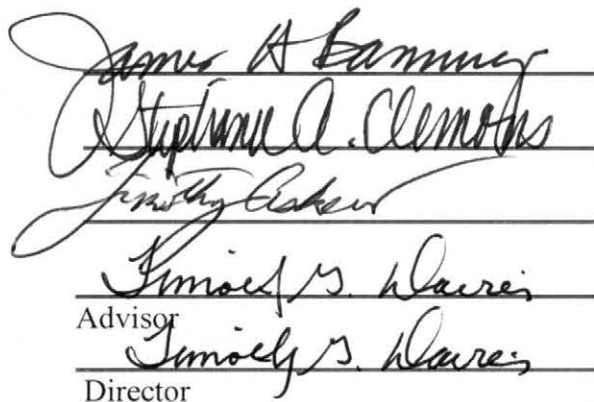 James H Banning
Stephanie A. Clemons
Timothy
Timothy G. Davies
Advisor
Timothy G. Davies
Director